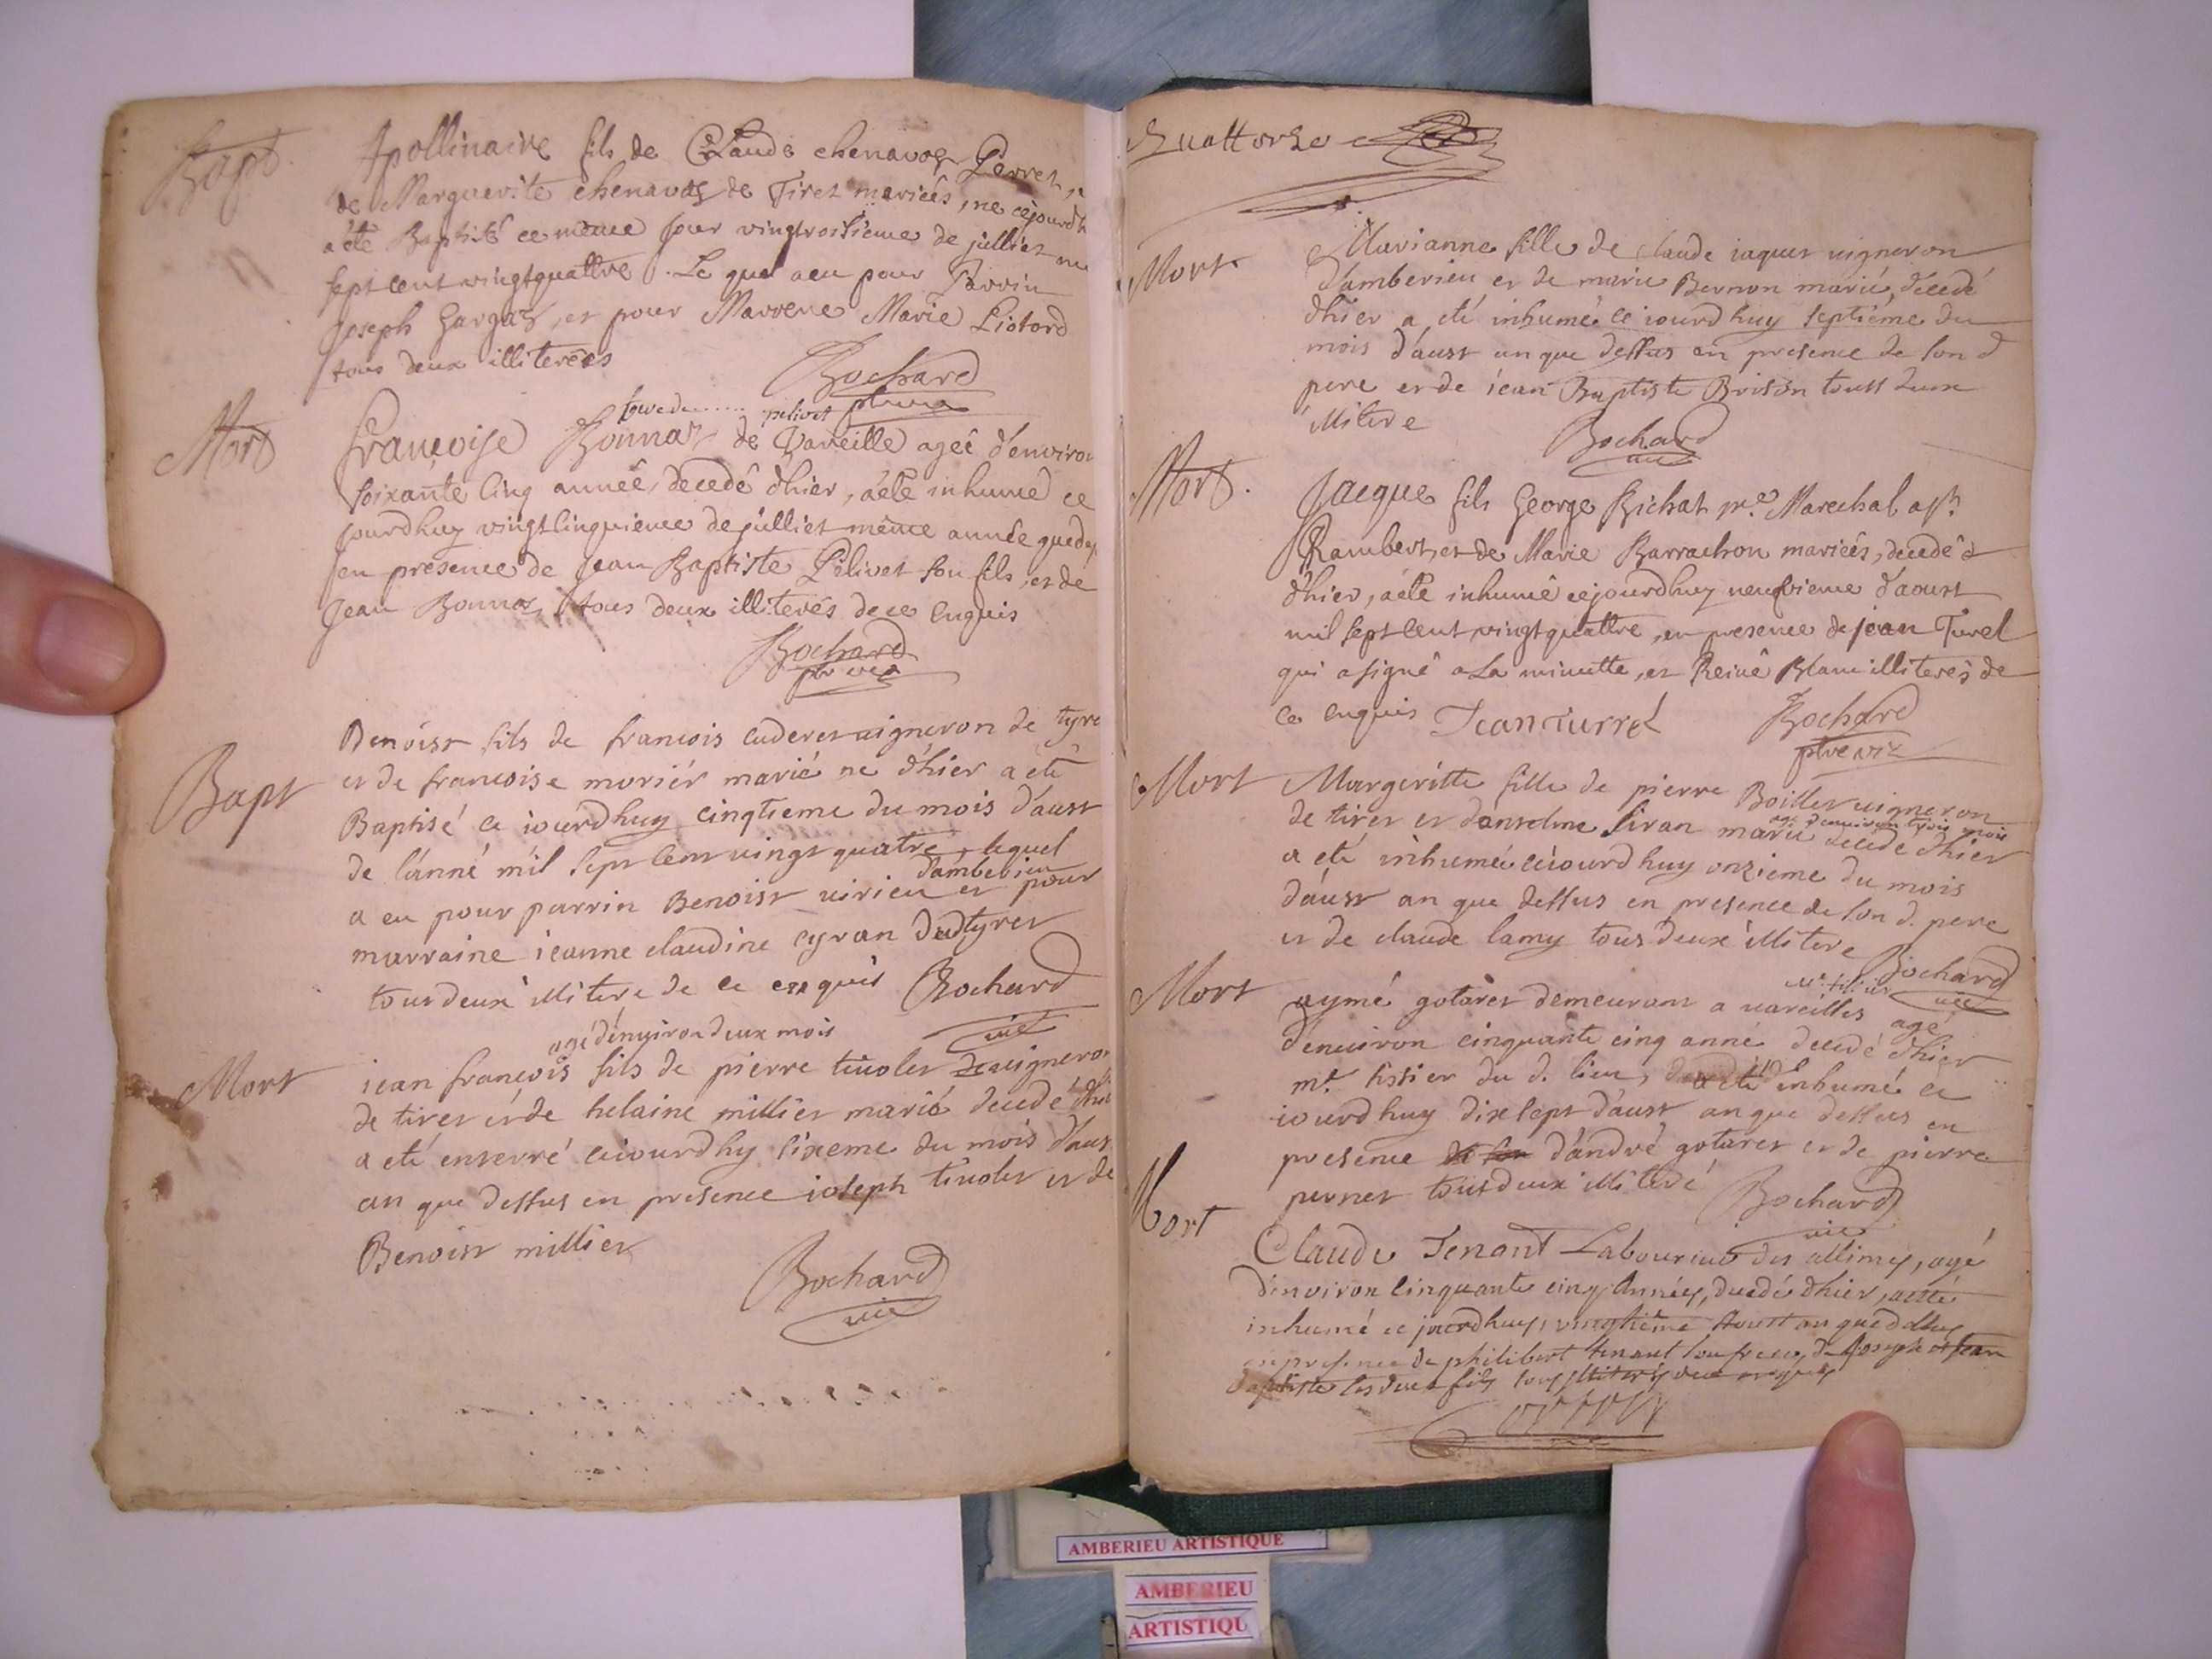 Bapt
Apollinaire fils de Claude chenavas Perret,
de Marguerite chenavas de Tiret mariés, ne cejourdh
a été Baptisé ce même jour vingtroisieme de juilliet
sept cent vingtquattre. Le quel a eu pour Parrin
Joseph Gargas, et pour Marrene Marie Liotord
tous deux illiterées
Bochard
ptre
Mort
pelivet
françoise Bonnaz de Vareille ageê d'environ
soixante cinq anneê, decedê d'hier, a étê inhumeê ce
jourdhuy vingtcinquieme de juilliet même année que
en presence de Jean Baptiste Pelivet son fils, et de
Jean Bonnaz, tous deux illiterés de ce enquis
Bochard
ptre vic
Bapt
Benoist fils de francois cuderet uigneron de tyre
et de francoise moriér marié ne d'hier a eté
Baptisé ce iourdhuy cinqtieme du mois d'aust
de l'anné mil sept cent uingt quatre, lequel
d'ambeŕieu
a eu pour parrin Benoist uirieu et pour
marraine ieanne claudine syran dudtyret
tous deux illitere de ce enquis Bochard
vic
Mort
agé d'enuiron deux mois
iean francois fils de pierre tiuolet uigneron
de tiret et de helaine millier marié decede d'hier
a eté enterré ceiourdhy sixeme du mois d'aust
an que dessus en presence ioseph tiuolet et de
Benoist millier
Bochard
vic
Quattorze
Mort
Marianne fille de claude iaquet uigneron
d'amberieu et de marie Bernon marié, decedé
d'hier a eté inhumé ce iourdhuy septiéme du
mois d'aust an que dessus en presence de son d
pere et de iean Baptiste Brison touss deux
illitere
Bochard
vic
Mort.
Jacque fils George Bichat Mareschal a St
Rambert, et de Marie Barrachon mariés, decedê
d'hier, a étê inhumê cejourdhuy neufvieme d'aoust
mil sept cent vingtquattre, en presence de jean Turel
qui a signê a la minutte, et Reinê Blanc illiterés de
ce enquis Jean turrel Bochard
ptre vic
Mort
Margeritte fille de pierre Boillet uigneron
agé d'enuiron trois mois
de tiret et d'anselme siran marié decede d'hier
a eté inhumé ceiourdhuy onzieme du mois
d'aust an que dessus en presence de son d. pere
et de claude lamy tous deux illitere
Bochard
vic
Mort
aymé gotaret demeurant a uareilles agé
d'enuiron cinquante cinq anné decedé d'hier
mt. tissier du d. lieu, a eté inhumé ce
iourdhuy dixsept d'aust an que dessus en
presence d'andré gotaret et de pierre
pernet tous deux illiteré Bochard
vic
Mort
Claude Tenant Laboureur des allimes, agé
d'environ cinquante cinq Années, decedé d'hier, a été
inhumé ce jourdhuy, vinghtième Aoust an que dessus
en presence de philibert tenant son frere, de Joseph et Jean
Baptiste les deux fils tous illiterés de ce enquis
AMBERIEU ARTISTIQUE
AMBERIEU
ARTISTIQU